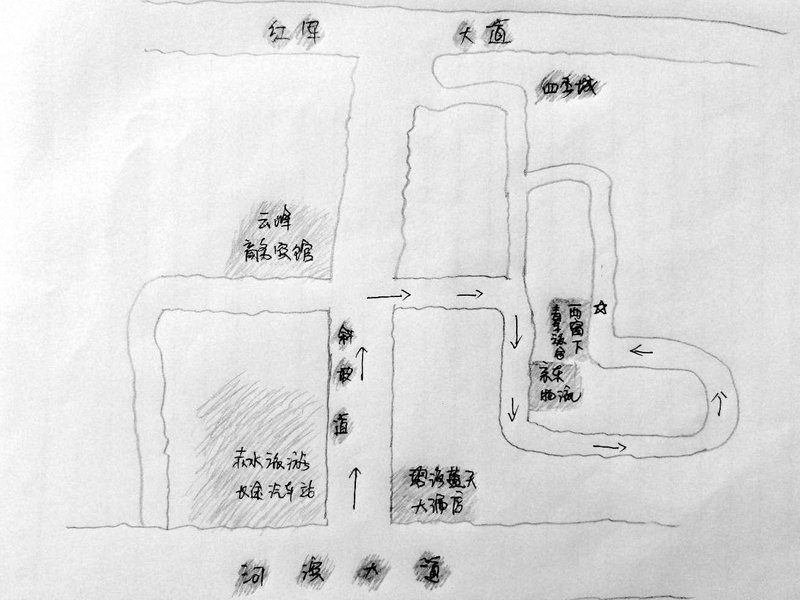 红军 大道
四季城
云峰
商务宾馆
西窗下
青年旅舍
京东
物流
斜
坡
道
赤水旅游
长途汽车站
碧海蓝天
大酒店
河滨大道